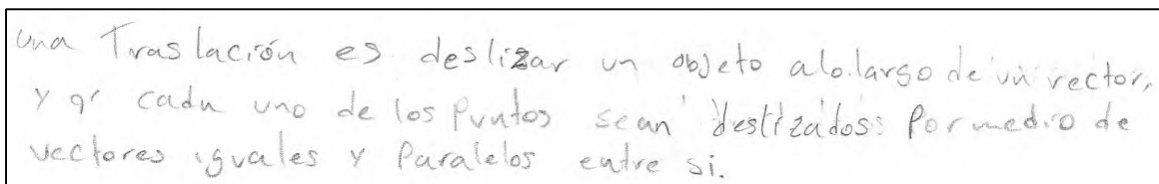 una Traslación es deslizar un objeto alo largo de un vector,
y q' cada uno de los Puntos sean deslizados Por medio de
vectores iguales y Paralelos entre si.